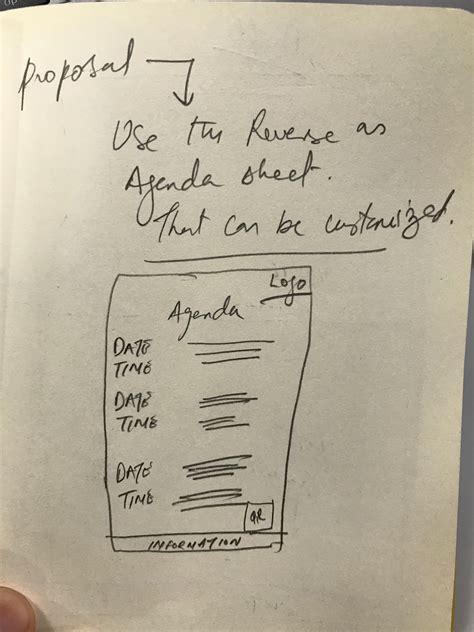 Proposal
Use the Reverse as
Agenda sheet.
That can be customized.
Logo
Agenda
DATE
TIME
DATE
TIME
DATE
TIME
QR
INFORMATION